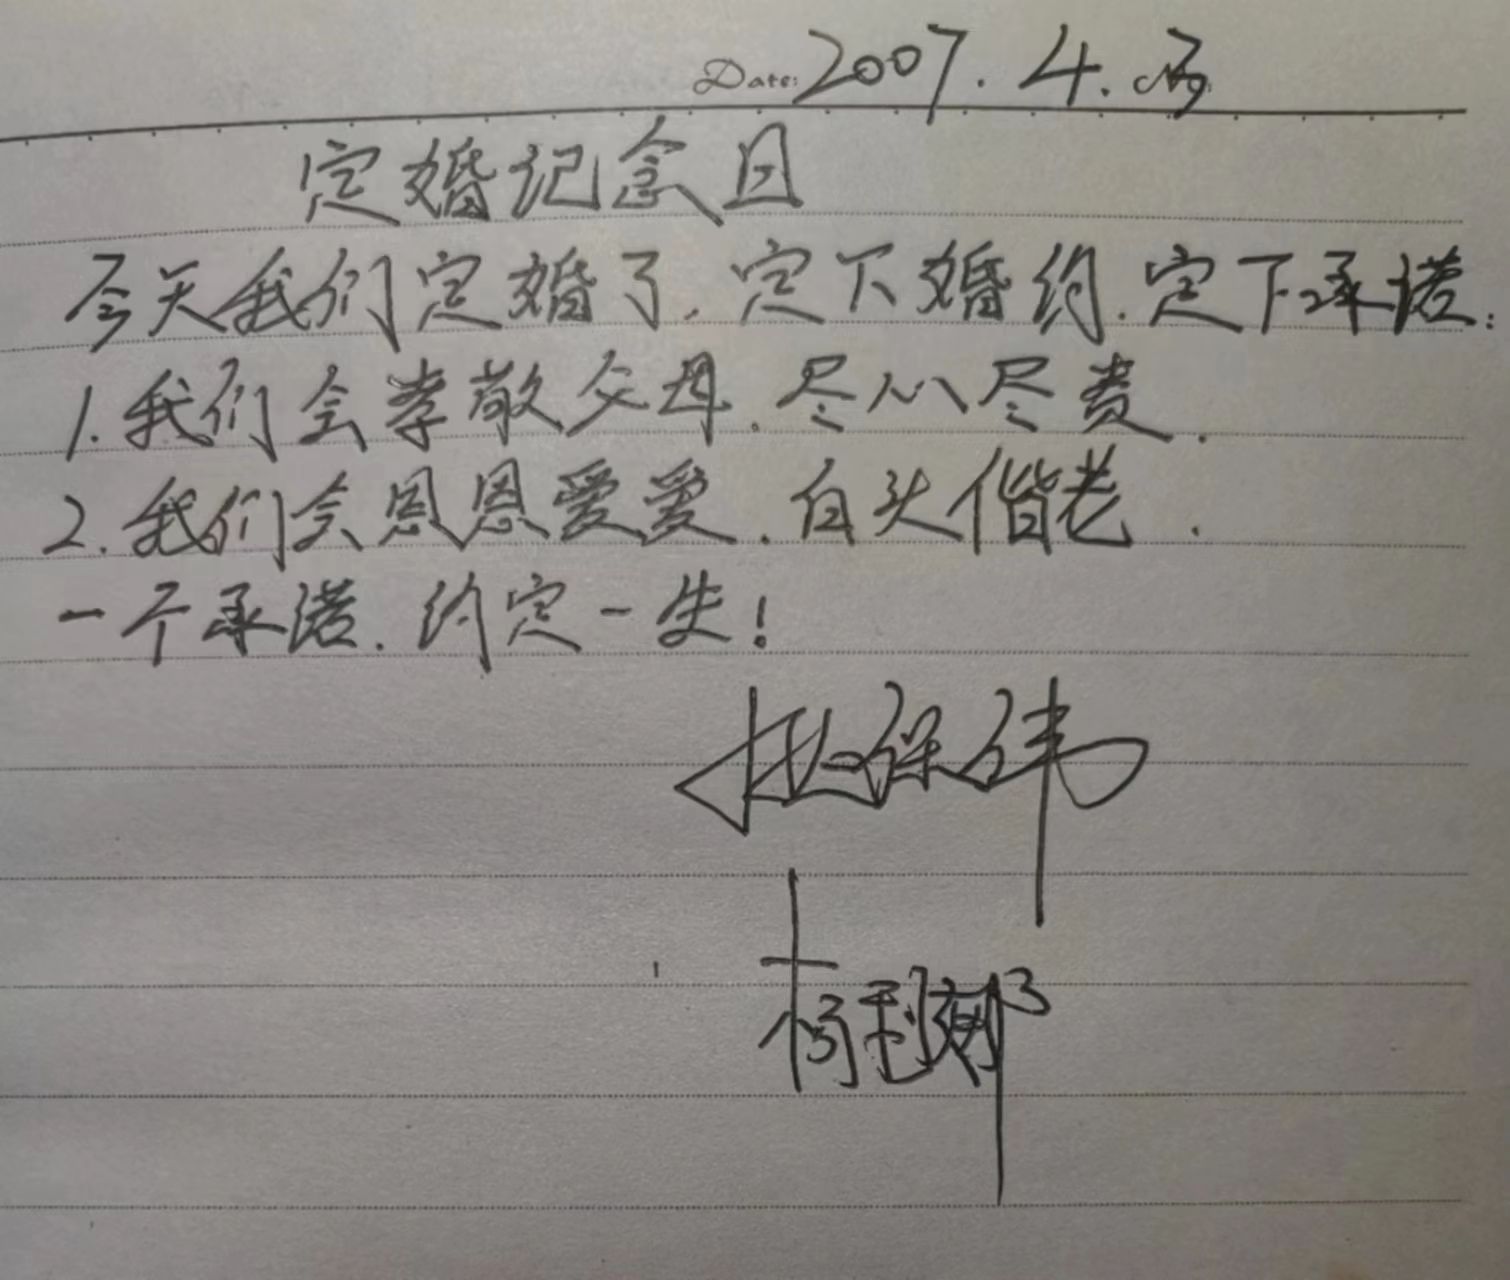 Date: 2007.4.
定婚记念日
今天我们定婚了,定下婚约.定下承诺:
1.我们会孝敬父母.尽心尽责.
2.我们会恩恩爱爱.白头偕老.
一个承诺.约定一生!
保伟
杨利